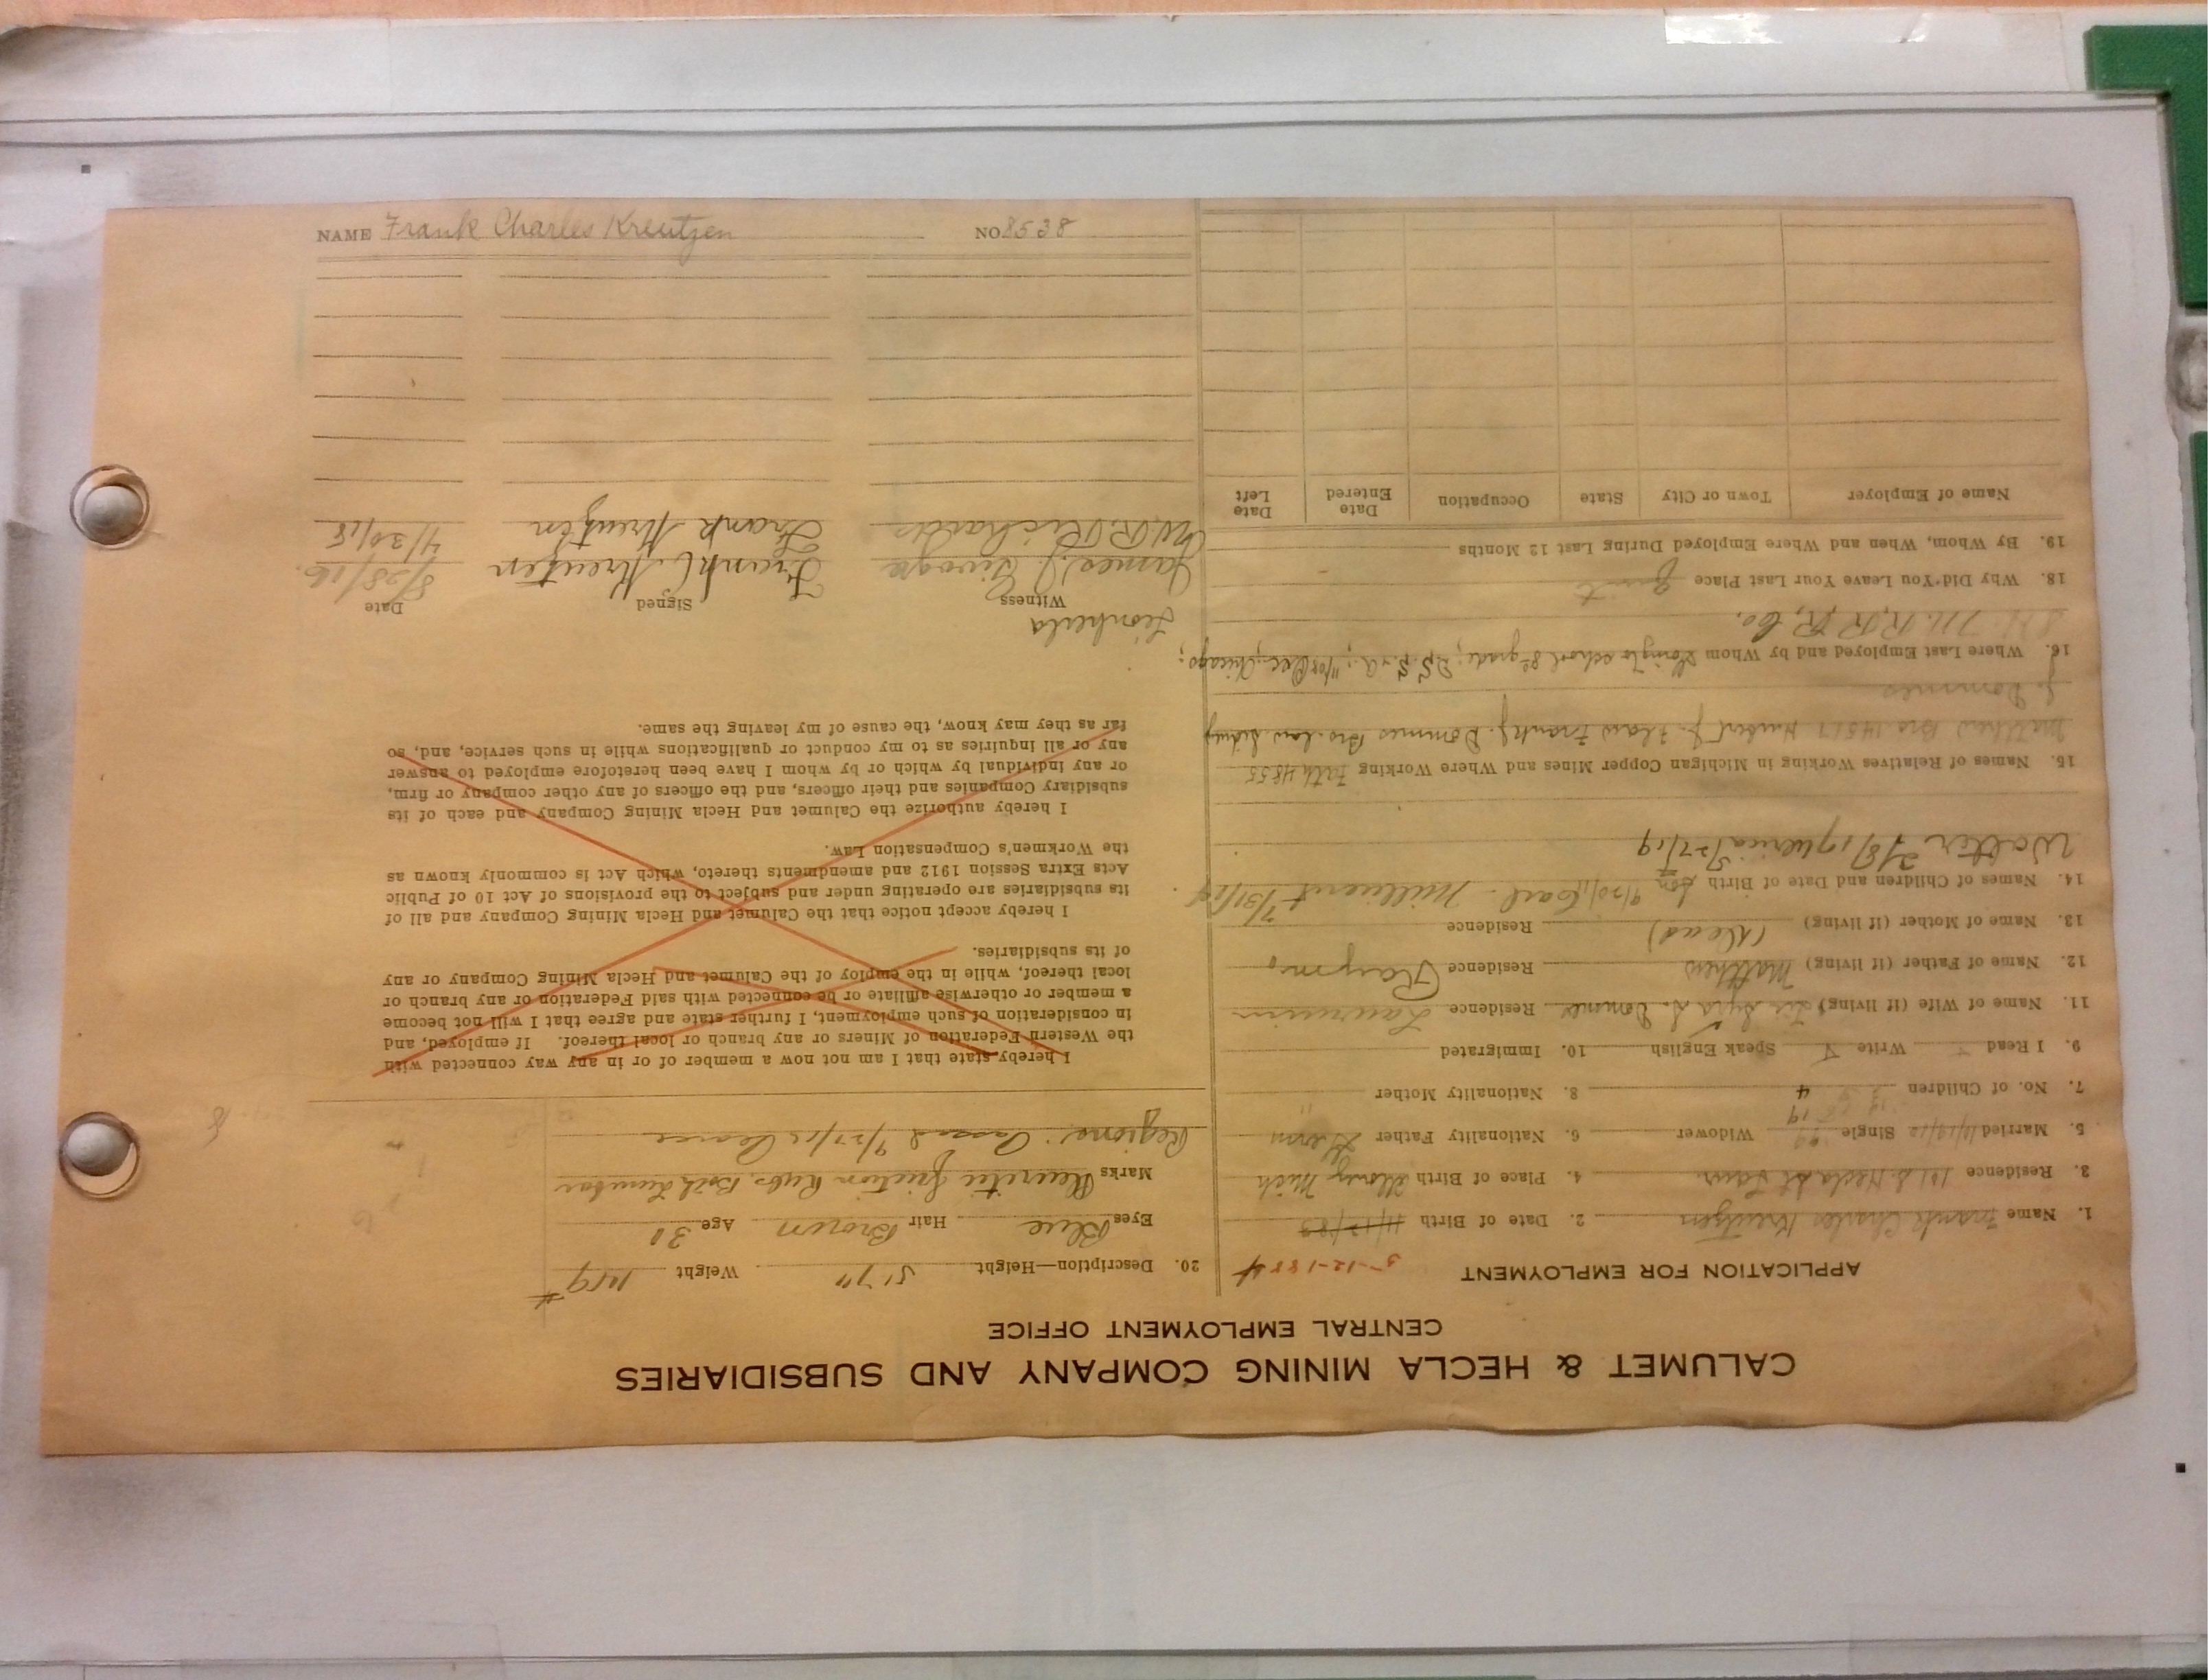 CALUMET & HECLA MINING COMPANY AND SUBSIDIARIES
CENTRAL EMPLOYMENT OFFICE
APPLICATION FOR EMPLOYMENT 5-12-1884
1. Name Frank Charles Kreutzen 2. Date of Birth 11/12/85
3. Residence 101 S. Hecla St Laur. 4. Place of Birth Mich
5. Married 10/19/10 Single Widower 6. Nationality Father Germ
7. No. of Children 4 8. Nationality Mother "
9. I Read Write Speak English 10. Immigrated
11. Name of Wife (if living) Domines Residence Laurium
12. Name of Father (if living) Matthew Residence Raym.
13. Name of Mother (if living) (Dead) Residence
14. Names of Children and Date of Birth 9/20/11 Carl - Millicent 7/31/14
Walter 2/8/17 5/27/19
15. Names of Relatives Working in Michigan Copper Mines and Where Working Fath 4855
Matthew Bro 14517 Hubert J. Frank J. Dommes Bro. law Sidney
J. Dommes
16. Where Last Employed and by Whom Going to school 8th grade; Chicago;
M. R. R. R. Co.
18. Why Did You Leave Your Last Place Quit
19. By Whom, When and Where Employed During Last 12 Months
Name of Employer Town or City State Occupation Date Entered Date Left
20. Description—Height 5'7" Weight 159#
Eyes Blue Hair Brown Age 30
Marks Both Lumbar
Regions. Passed 9/27/16
I hereby state that I am not now a member of or in any way connected with
the Western Federation of Miners or any branch or local thereof. If employed, and
in consideration of such employment, I further state and agree that I will not become
a member or otherwise affiliate or be connected with said Federation or any branch or
local thereof, while in the employ of the Calumet and Hecla Mining Company or any
of its subsidiaries.
I hereby accept notice that the Calumet and Hecla Mining Company and all of
its subsidiaries are operating under and subject to the provisions of Act 10 of Public
Acts Extra Session 1912 and amendments thereto, which Act is commonly known as
the Workmen's Compensation Law.
I hereby authorize the Calumet and Hecla Mining Company and each of its
subsidiary Companies and their officers, and the officers of any other company or firm,
or any individual by which or by whom I have been heretofore employed to answer
any or all inquiries as to my conduct or qualifications while in such service, and, so
far as they may know, the cause of my leaving the same.
Witness Signed Date
James J. Frank Kreutzen 8/28/16.
W. R. Richards Frank Kreutzen 4/30/18
NAME Frank Charles Kreutzen NO. 8538